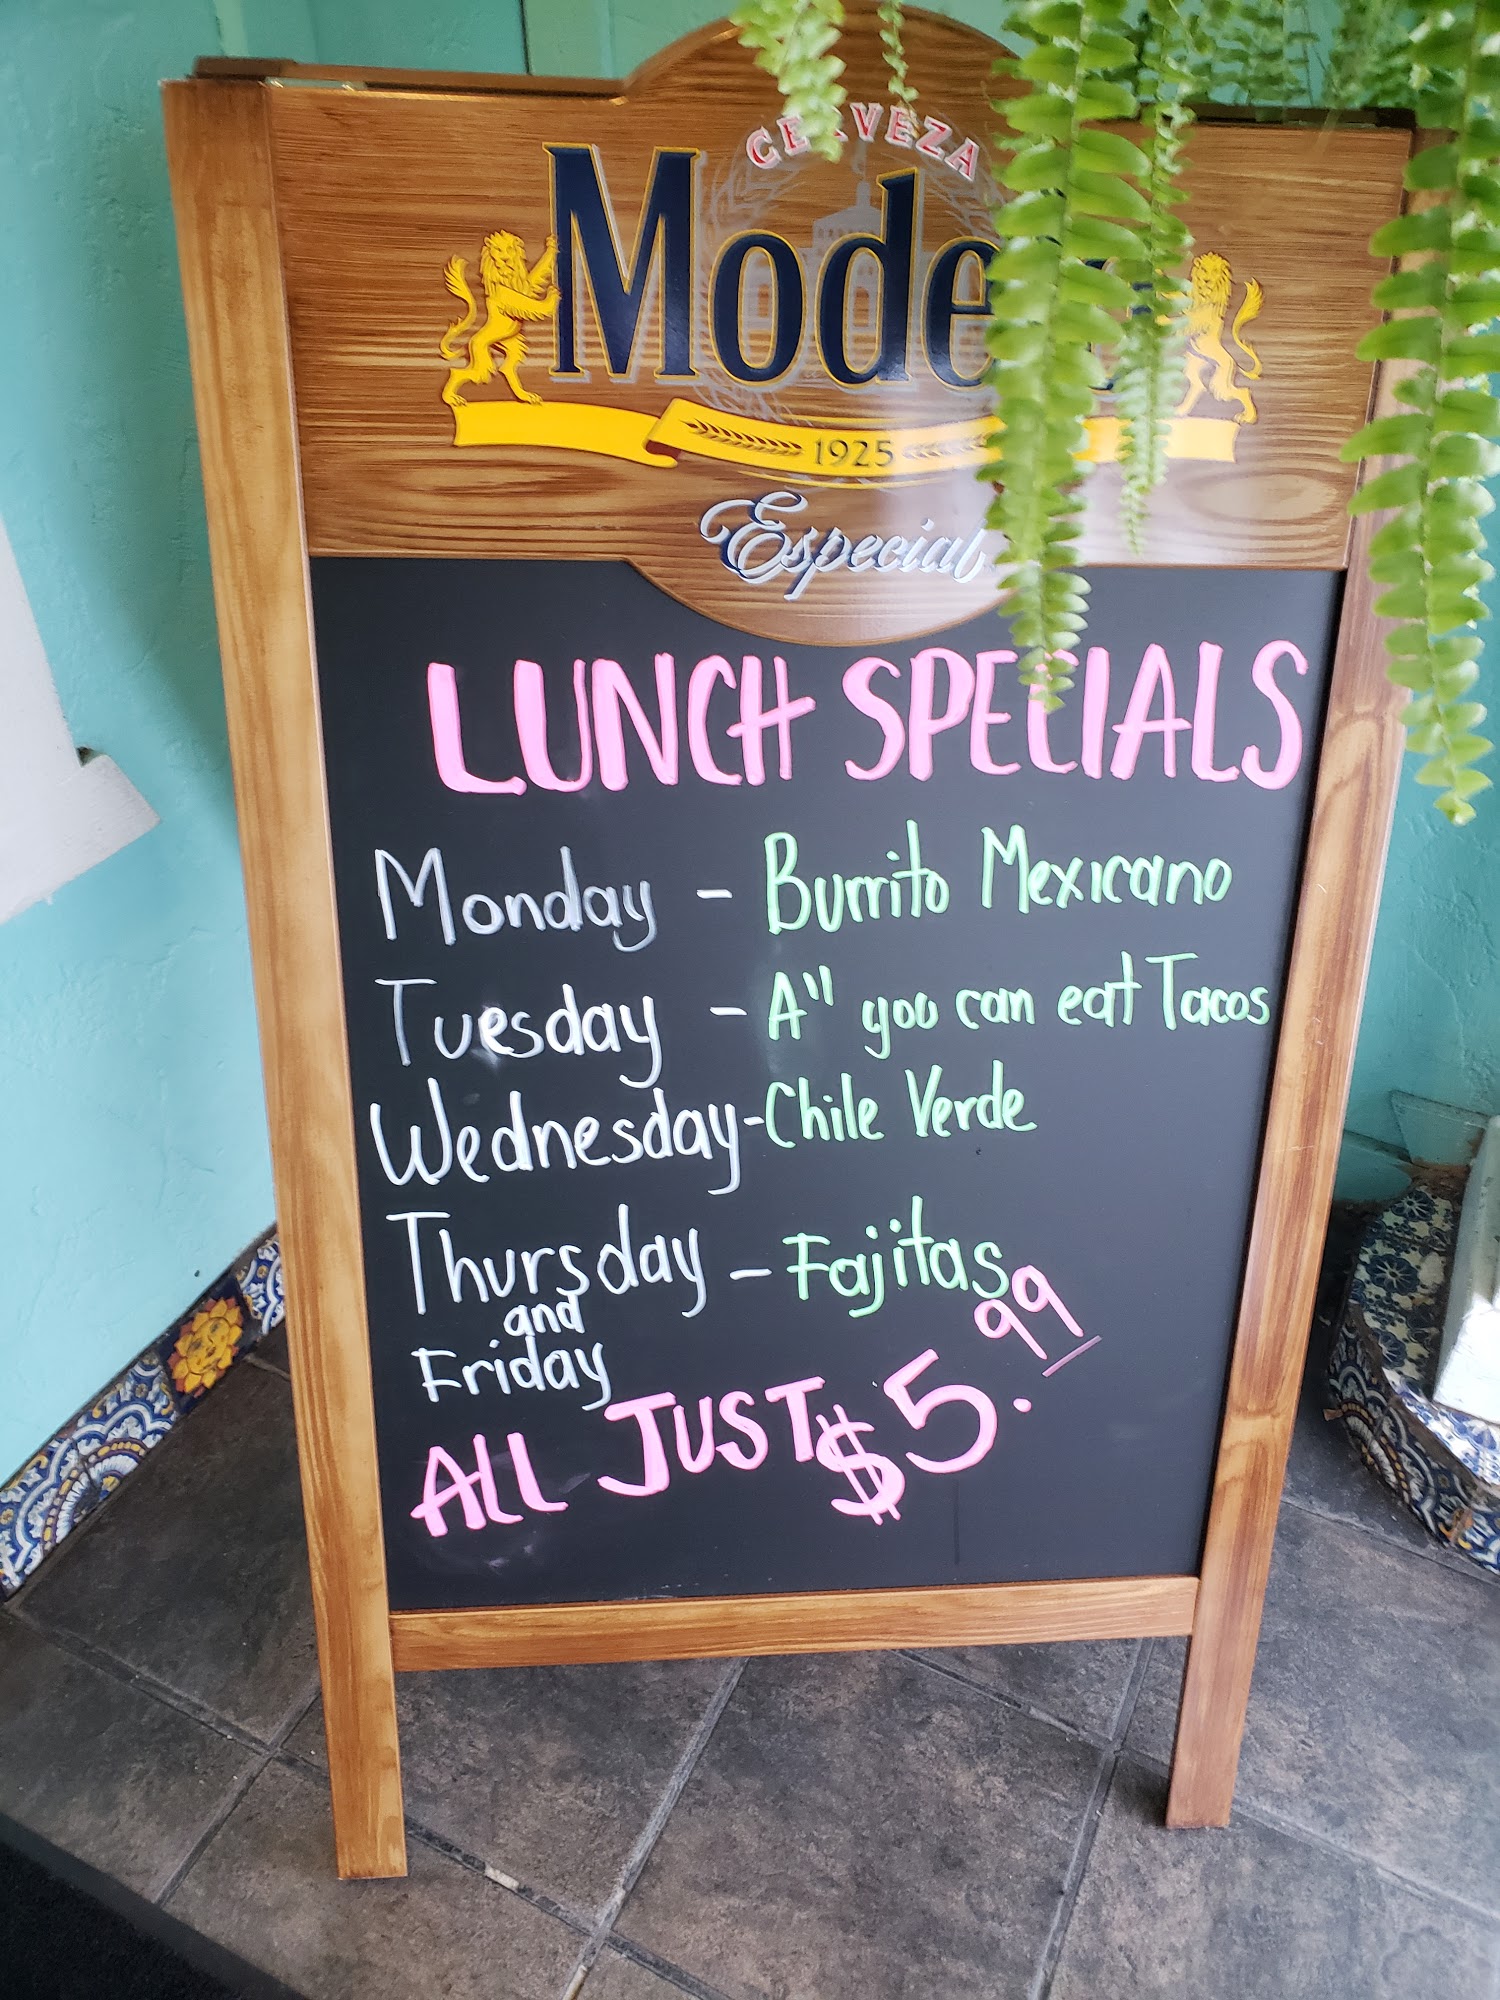 CERVEZA
Modelo
1925
Especial
LUNCH SPECIALS
Monday - Burrito Mexicano
Tuesday - A" you can eat Tacos
Wednesday - Chile Verde
Thursday - Fajitas
and
Friday
ALL JUST $5.99